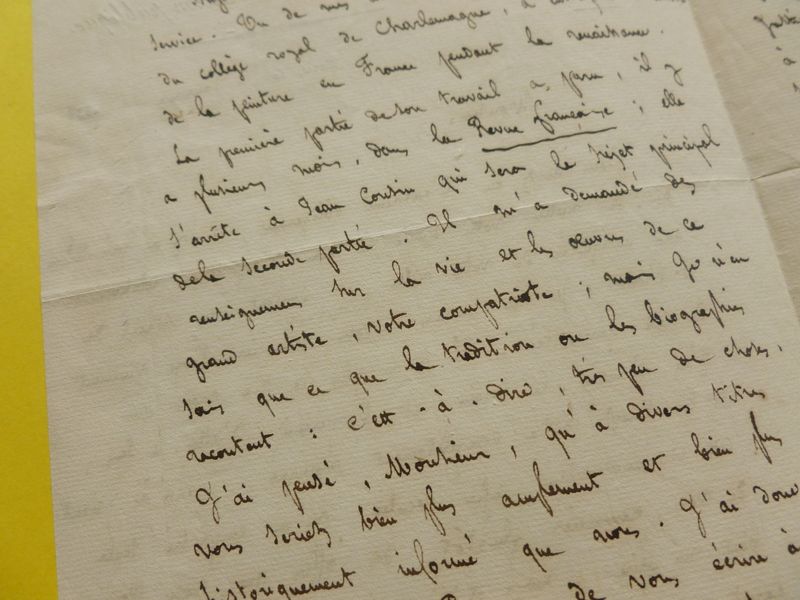 service. Un de mes
du collège royal de Charlemagne, à
de la peinture en France pendant la renaissance.
La première partie de son travail a paru, il y
a plusieurs mois, dans la Revue française ; elle
s'arrête à Jean Cousin qui sera le sujet principal
de la seconde partie. Il m'a demandé des
renseignemens sur la vie et les œuvres de ce
grand artiste, votre compatriote ; mais je n'en
sais que ce que la tradition ou les biographies
racontent : c'est-à-dire, très peu de choses.
J'ai pensé, Monsieur, qu'à divers titres
vous seriez bien plus amplement et bien plus
historiquement informé que nous. J'ai donc
de vous écrire à